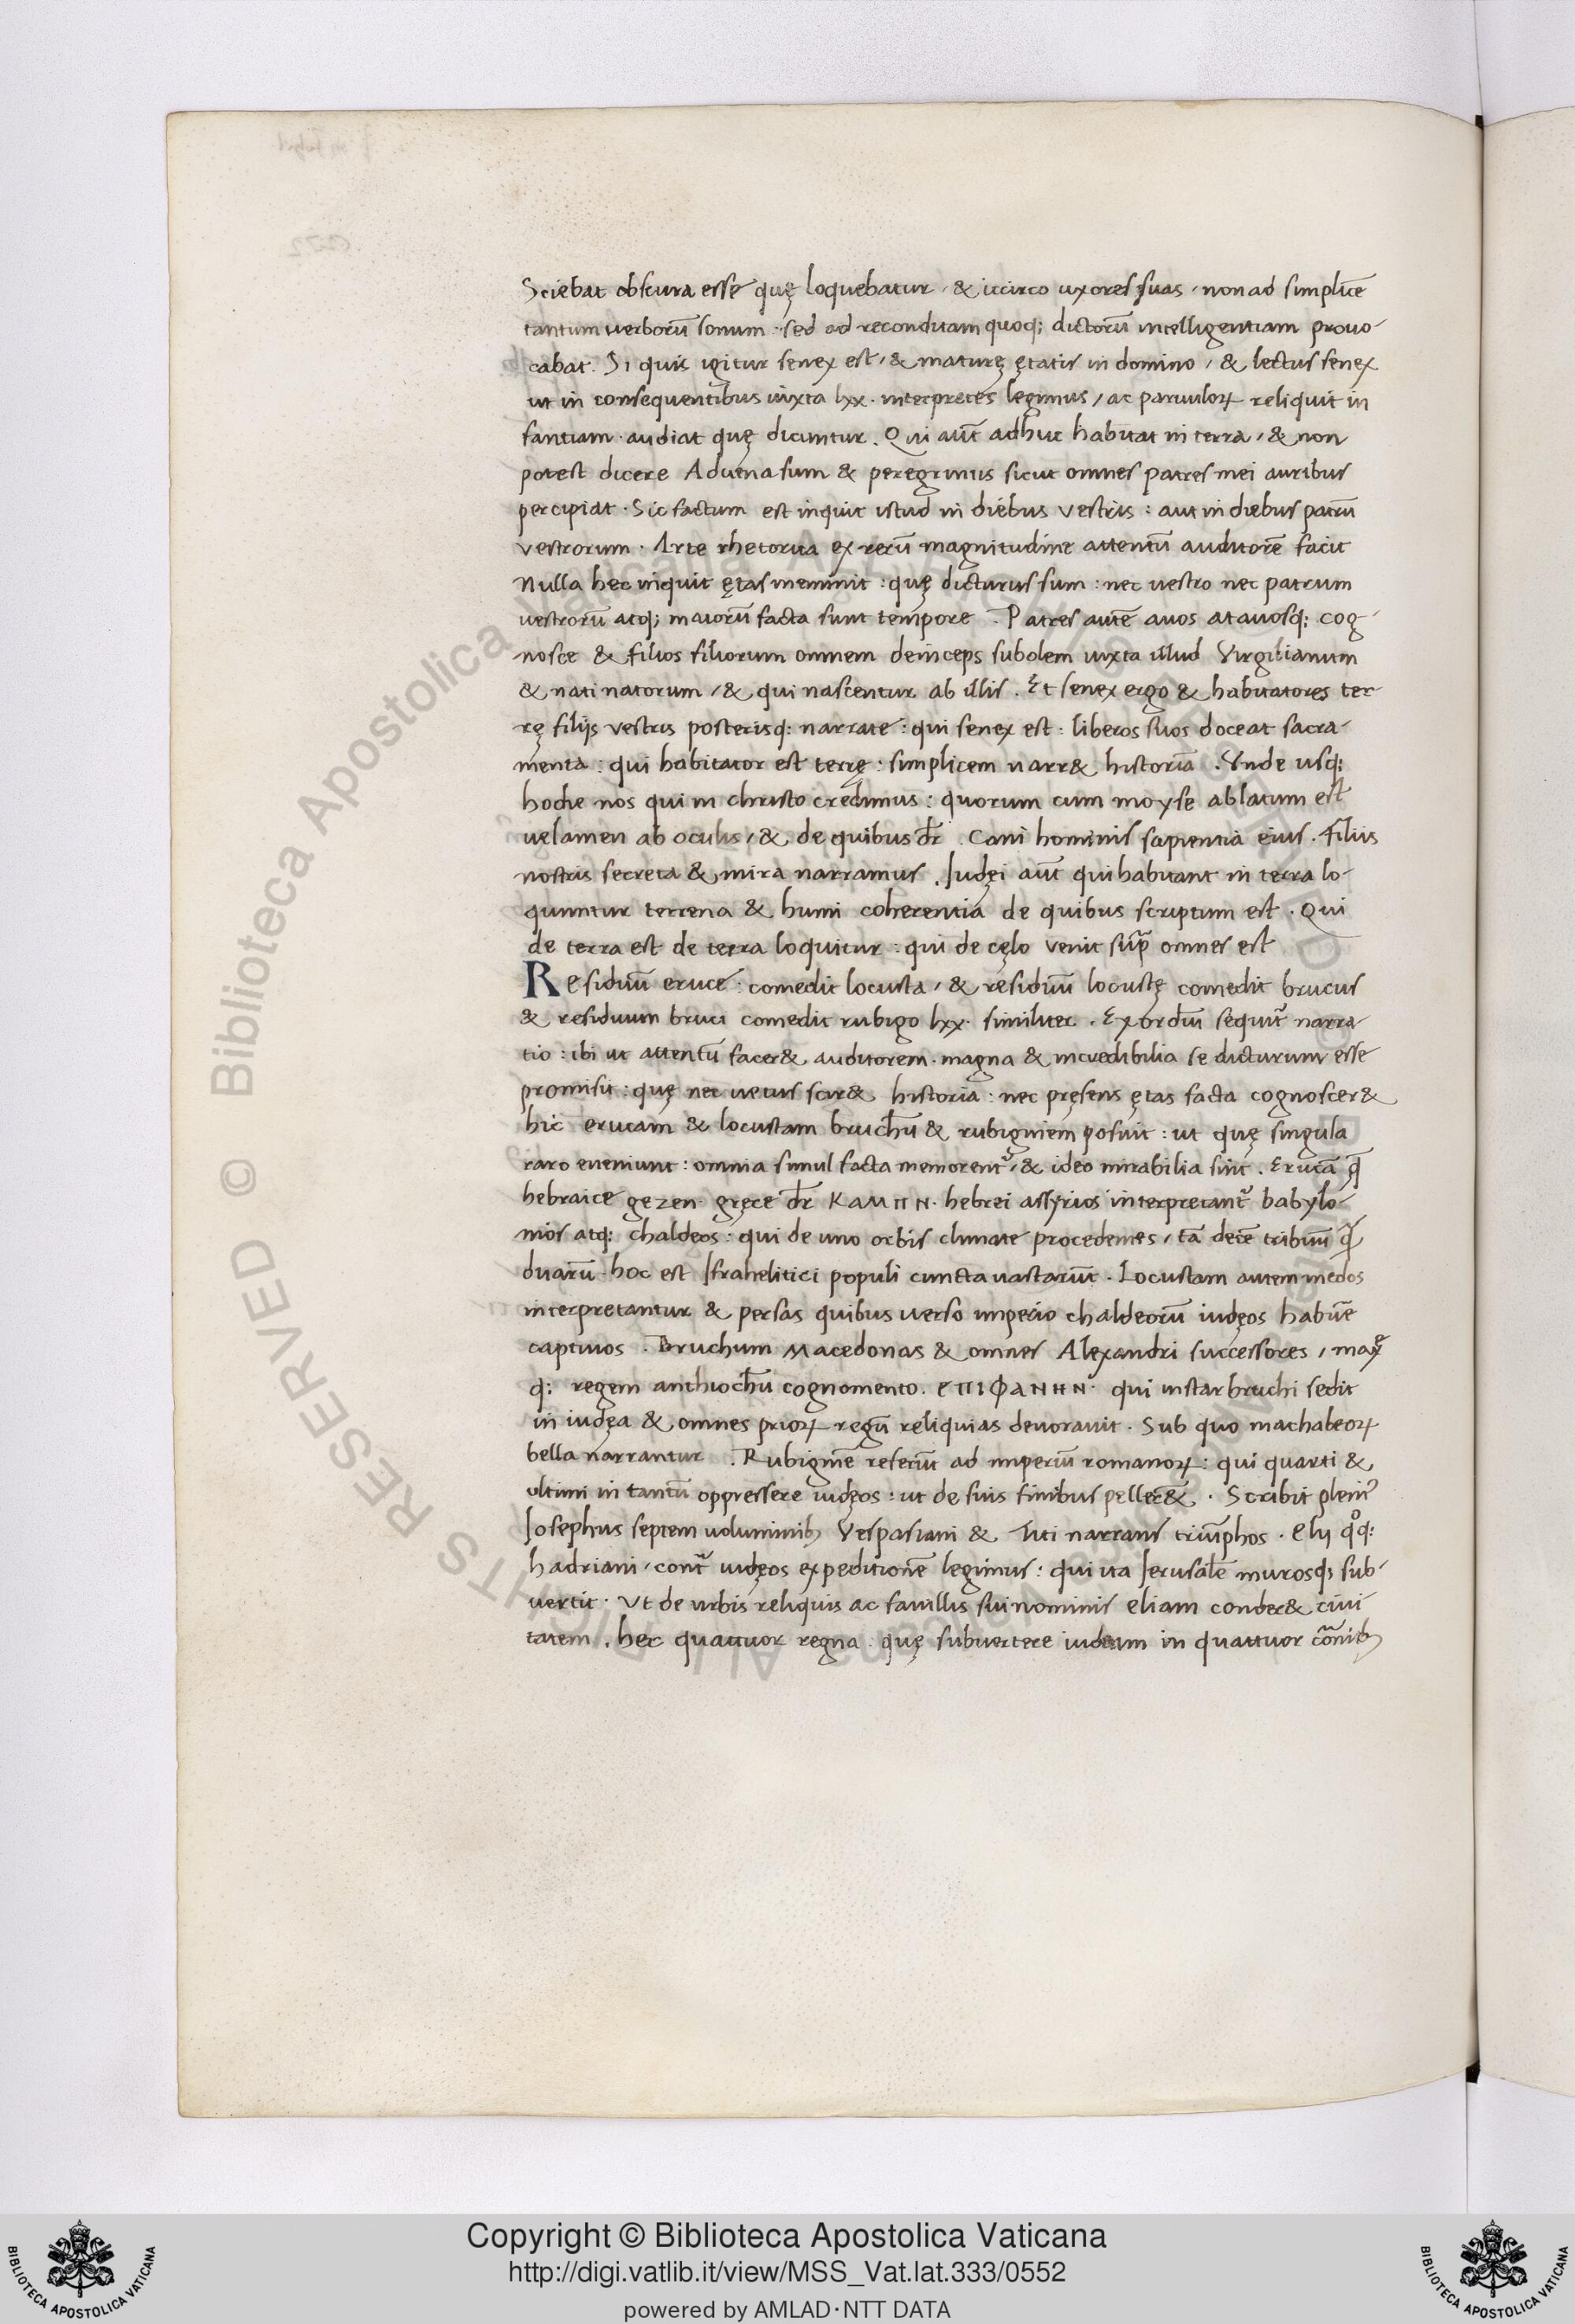 Sciebat obscura esse quę loquebatur / & iccirco uxores suas / non ad simplicē
tantum uerborū sonum : sed ad reconditam quoq; dictorū intelligentiam prouo-
cabat. Si quis igitur senex est / & maturę ętatis in domino / & lectus senex
ut in consequentibus iuxta lxx. interpretes legimus / ac paruuloꝝ reliquit in
fantiam. audiat quę dicuntur. Qui aūt adhuc habitat in terra / & non
potest dicere Aduena sum & peregrinus sicut omnes patres mei auribus
percipiat. Sic factum est inquit istud in diebus vestris : aut in diebus patrū
vestrorum. Arte rhetorica ex rerū magnitudine attentū auditorē facit
Nulla hec inquit ętas meminit : quę dicturus sum : nec uestro nec patrum
uestrorū atq; maiorū facta sunt tempore. Patres autē auos atauosq; cog-
nosce & filios filiorum omnem deinceps subolem iuxta illud Virgilianum
& nati natorum / & qui nascentur ab illis. Et senex ergo & habitatores ter-
rę filijs vestris posterisq; narrate : qui senex est : liberos suos doceat sacra-
menta : qui habitator est terrę : simplicem narr& historiā. Vnde usq;
hodie nos qui in christo credimus : quorum cum moyse ablatum est
uelamen ab oculis / & de quibus dr̄. Cani hominis sapientia eius. Filiis
nostris secreta & mira narramus. Judęi aūt qui habitant in terra lo-
quuntur terrena & humi coherentia de quibus scriptum est. Qui
de terra est de terra loquitur : qui de cęlo venit sup̄ omnes est
Residuū eruce : comedit locusta / & residuū locustę comedit brucus
& residuum bruci comedit rubigo lxx. similiter. Exordiū sequit᷑ narra
tio : ibi ut attentū facer& auditorem. magna & incredibilia se dicturum esse
promisit : quę nec uetus scir& historia : nec pręsens ętas facta cognoscer&
hic erucam & locustam bruchū & rubiginem posuit : ut quę singula
raro eueniunt : omnia simul facta memorent᷑ / & ideo mirabilia sint. Erucā q̄
hebraice gezen. gręce dr̄ ΚΑΜΠΝ. hebrei assyrios interpretant᷑ babylo-
nios atq; chaldeos : qui de uno orbis climate procedentes / tā decē tribuū q̄
duarū hoc est Israhelitici populi cuncta uastarūt. Locustam autem medos
interpretantur & persas quibus uerso imperio chaldeorū iudęos habuē
captiuos. Bruchum Macedonas & omnes Alexandri successores / maxe
q; regem anthiochū cognomento. ЄΠΙΦΑΝΗΝ. qui instar bruchi sedit
in iudęa & omnes prioꝝ regū reliquias deuorauit. Sub quo machabeoꝝ
bella narrantur. Rubiginē referūt ad imperiū romanoꝝ : qui quarti &
ultimi in tantū oppressere iudęos : ut de suis finibus peller&. Scribit pleni᷑
Josephus septem uoluminib; Vespasiani & Titi narrans triūphos. Elij qͦq;
hadriani / cont᷑ iudęos expeditionē legimus : qui ita Jerusalē murosq; sub-
uertit. Ut de urbis reliquis ac fauillis sui nominis eliam conder& ciui
tatem. hec quattuor regna quę subuertere iudeam in quattuor cōnib;
Copyright © Biblioteca Apostolica Vaticana
http://digi.vatlib.it/view/MSS_Vat.lat.333/0552
powered by AMLAD·NTT DATA
BIBLIOTECA APOSTOLICA VATICANA
BIBLIOTECA APOSTOLICA VATICANA